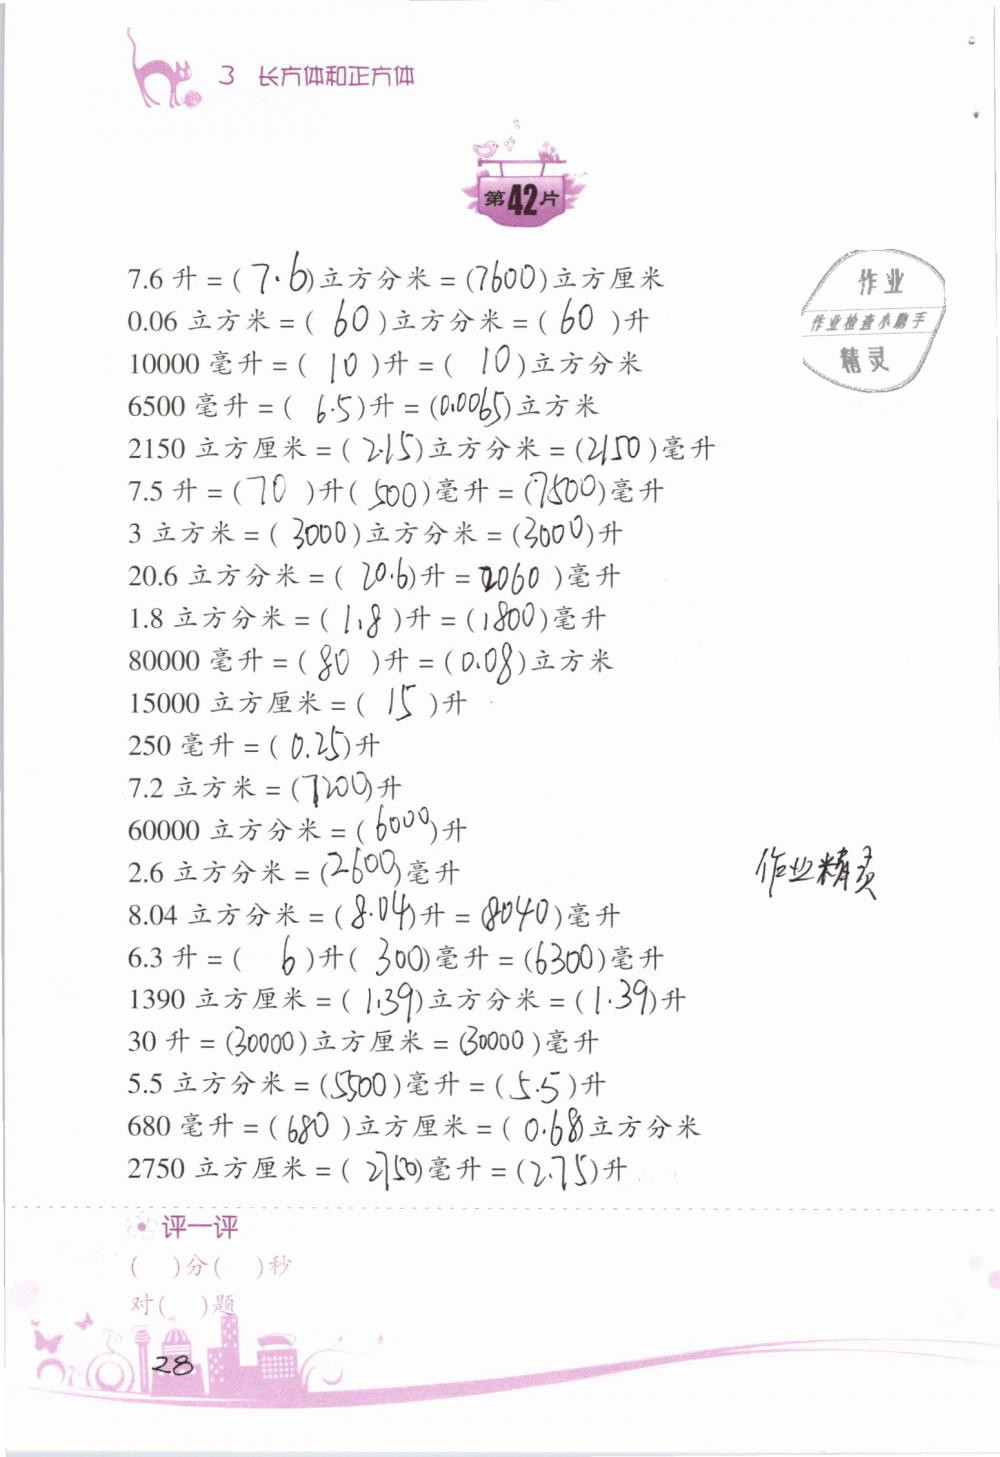 3 长方体和正方体
第42片
7.6 升 = ( 7.6 )立方分米 = (7600)立方厘米
0.06 立方米 = ( 60 )立方分米 = ( 60 )升
10000 毫升 = ( 10 )升 = ( 10 )立方分米
6500 毫升 = ( 6.5 )升 = (0.0065)立方米
2150 立方厘米 = ( 2.15 )立方分米 = (2150 )毫升
7.5 升 = (70 )升( 500 )毫升 = (7500)毫升
3 立方米 = ( 3000)立方分米 = (3000)升
20.6 立方分米 = ( 20.6)升 = 2060 )毫升
1.8 立方分米 = ( 1.8 )升 = (1800)毫升
80000 毫升 = ( 80 )升 = ( 0.08)立方米
15000 立方厘米 = ( 15 )升
250 毫升 = ( 0.25)升
7.2 立方米 = (7200)升
60000 立方分米 = ( 6000)升
2.6 立方分米 = (2600)毫升
8.04 立方分米 = ( 8.04)升 = (8040)毫升
6.3 升 = ( 6 )升( 300)毫升 = (6300)毫升
1390 立方厘米 = ( 1.39)立方分米 = (1.39)升
30 升 = (30000)立方厘米 = (30000 )毫升
5.5 立方分米 = (5500)毫升 = ( 5.5 )升
680 毫升 = ( 680 )立方厘米 = ( 0.68)立方分米
2750 立方厘米 = ( 2750)毫升 = (2.75)升
作业
作业检查小助手
精灵
作业精灵
评一评
( )分( )秒
对( )题
28